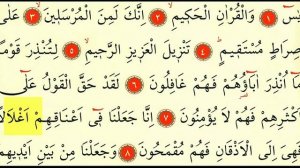 يٰسٓ ﴿١﴾ وَالْقُرْاٰنِ الْحَكِيمِ ﴿٢﴾ اِنَّكَ لَمِنَ الْمُرْسَلِينَ ﴿٣﴾ عَلٰى
صِرَاطٍ مُسْتَقِيمٍ ﴿٤﴾ تَنْزِيلَ الْعَزِيزِ الرَّحِيمِ ﴿٥﴾ لِتُنْذِرَ قَوْمًا
مَٓا اُنْذِرَ اٰبَٓاؤُ۬هُمْ فَهُمْ غَافِلُونَ ﴿٦﴾ لَقَدْ حَقَّ الْقَوْلُ عَلٰٓى
اَكْثَرِهِمْ فَهُمْ لَا يُؤْمِنُونَ ﴿٧﴾ اِنَّا جَعَلْنَا ف۪ٓى اَعْنَاقِهِمْ اَغْلَالًا
فَهِىَ اِلَى الْاَذْقَانِ فَهُمْ مُقْمَحُونَ ﴿٨﴾ وَجَعَلْنَا مِنْ بَيْنِ اَيْدِيهِمْ